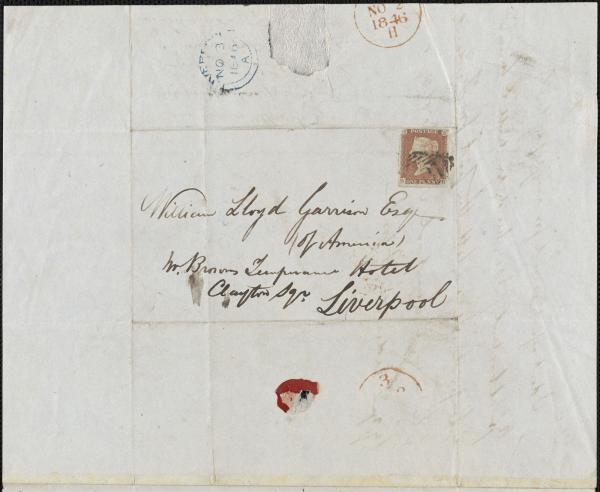 NO 2
1846
11
NO 3
1846
A
POSTAGE
ONE PENNY
William Lloyd Garrison Esqr
(of America)
Mr. Browns Temperance Hotel
Clayton Sqr.
Liverpool